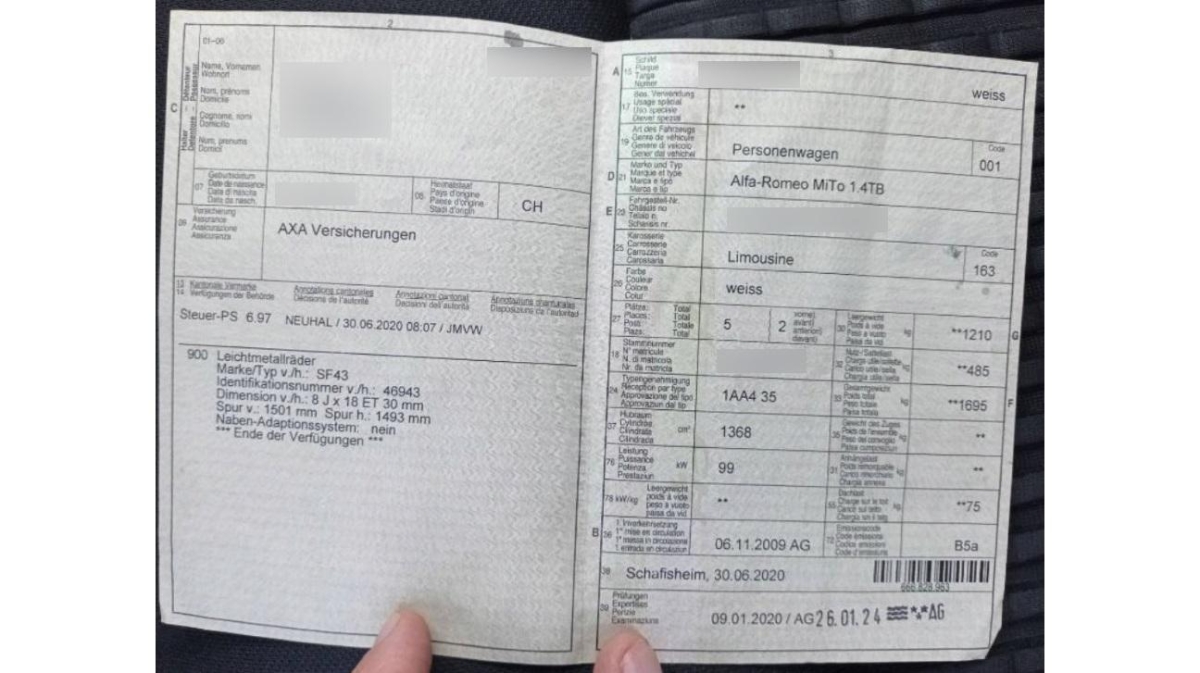 2
01-06
Name, Vornamen
Wohnort
Nom, prénoms
Domicile
Cognome, nomi
Domicilio
Num, prenums
Domicil
C
Halter Détenteur
Detentore Possessur
07
Geburtsdatum
Date de naissance
Data di nascita
Data da nasch.
05
Heimatstaat
Pays d'origine
Paese d'origine
Stadi d'origin
CH
09
Versicherung
Assurance
Assicurazione
Assicuranza
AXA Versicherungen
13
14
Kantonale Vermerke
Verfügungen der Behörde
Annotations cantonales
Décisions de l'autorité
Annotazioni cantonali
Decisioni dell'autorità
Annotaziuns chantunalas
Disposiziuns da l'autoritad
Steuer-PS 6.97 NEUHAL / 30.06.2020 08:07 / JMVW
900 Leichtmetallräder
Marke/Typ v./h.: SF43
Identifikationsnummer v./h.: 46943
Dimension v./h.: 8 J x 18 ET 30 mm
Spur v.: 1501 mm Spur h.: 1493 mm
Naben-Adaptionssystem: nein
*** Ende der Verfügungen ***
3
A
15
Schild
Plaque
Targa
Numer
weiss
17
Bes. Verwendung
Usage spécial
Uso speciale
Diever spezial
**
19
Art des Fahrzeugs
Genre de véhicule
Genere di veicolo
Gener dal vehichel
Personenwagen
Code
001
D
21
Marke und Typ
Marque et type
Marca e tipo
Marca e tip
Alfa-Romeo MiTo 1.4TB
E
23
Fahrgestell-Nr.
Châssis no
Telaio n.
Schassis nr.
25
Karosserie
Carrosserie
Carrozzeria
Carossaria
Limousine
Code
163
26
Farbe
Couleur
Colore
Colur
weiss
27
Plätze: Total
Places: Total
Posti: Totale
Plazs: Total
5
2
vorne)
avant)
anteriori)
davant)
30
Leergewicht
Poids à vide
Peso a vuoto
Paisa da vid
kg
**1210
G
18
Stammnummer
N° matricule
N. di matricola
Nr. da matricla
32
Nutz-/Sattellast
**485
24
Typengenehmigung
Réception par type
Approvazione del tipo
Approvaziun dal tip
1AA4 35
33
Gesamtgewicht
Poids total
Peso totale
Paisa totala
kg
**1695
F
37
Hubraum
Cylindrée
Cilindrata
Cilindrada
cm³
1368
35
Gewicht des Zuges
Poids de l'ensemble
Peso del convoglio
**
76
Leistung
Puissance
Potenza
Prestaziun
kW
99
31
Anhängelast
Poids remorquable
**
78 kW/kg
Leergewicht
poids à vide
peso a vuoto
paisa da vid
**
55
Dachlast
Charge sur le toit
Carico sul tetto
Chargia sin il tetg
kg
**75
B
36
1. Inverkehrsetzung
1re mise en circulation
1a messa in circolazione
1. entrada en circulaziun
06.11.2009 AG
72
Emissionscode
Code émissions
Codice emissioni
Code d'emissiuns
B5a
38
Schafisheim, 30.06.2020
666.828.963
39
Prüfungen
Expertises
Perizie
Examinaziuns
09.01.2020 / AG 26.01.24 AG